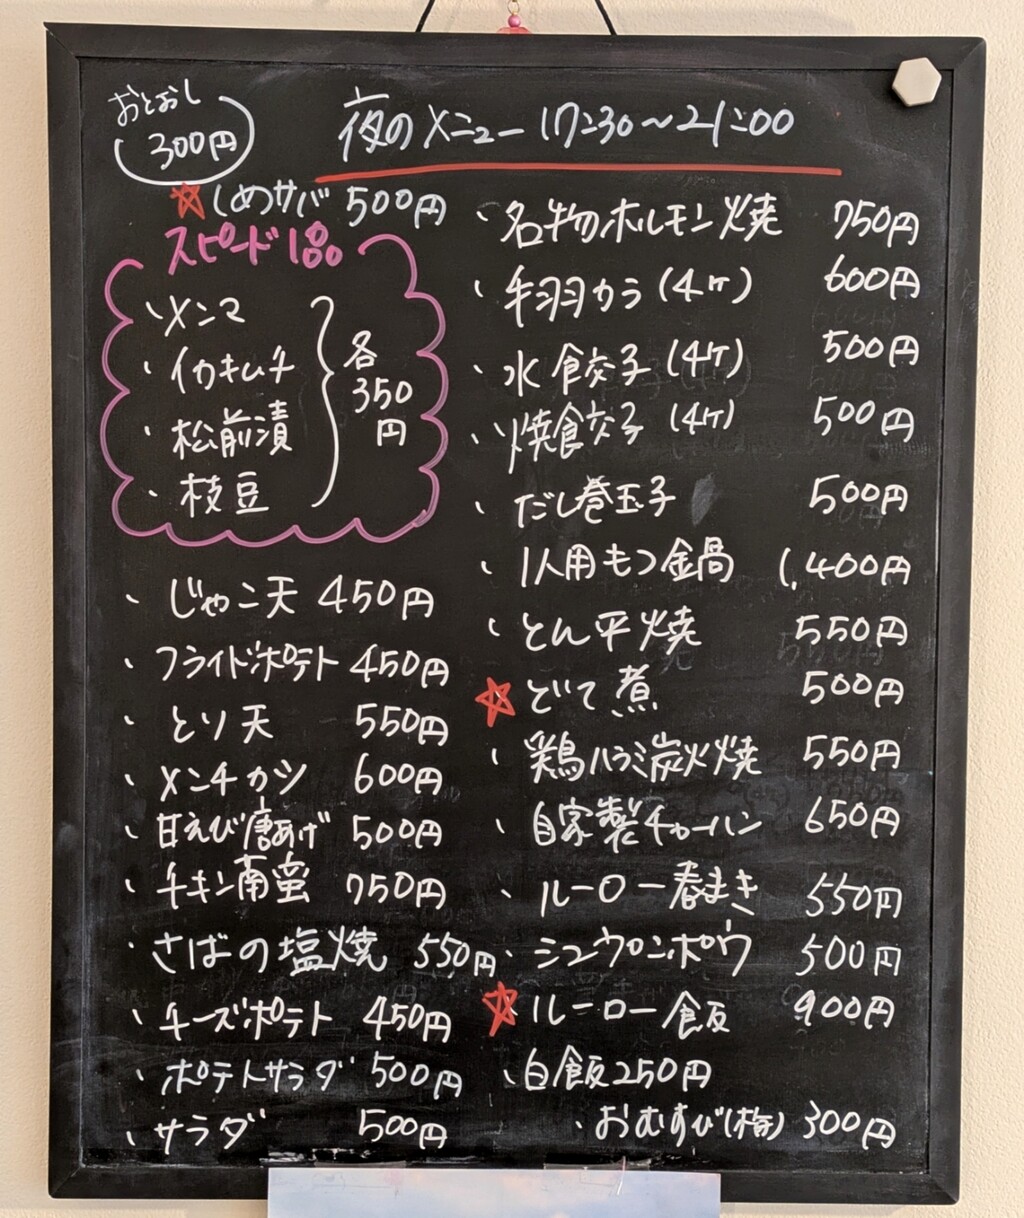 おとおし
300円
夜のメニュー 17:30〜21:00
☆しめサバ 500円
スピード1品
・メンマ
・イカキムチ
・松前漬
・枝豆
各
350
円
・じゃこ天 450円
・フライドポテト 450円
・とり天 550円
・メンチカツ 600円
・甘えび唐あげ 500円
・チキン南蛮 750円
・さばの塩焼 550円
・チーズポテト 450円
・ポテトサラダ 500円
・サラダ 500円
・名物ホルモン焼 750円
・手羽カラ(4ケ) 600円
・水餃子(4ケ) 500円
・焼餃子(4ケ) 500円
・だし巻玉子 500円
・1人用もつ鍋 1,400円
・とん平焼 550円
☆どて煮 500円
・鶏ハラミ炭火焼 550円
・自家製チャーハン 650円
・ルーロー春まき 550円
・ショウロンポウ 500円
☆ルーロー飯 900円
・白飯250円
・おむすび(梅) 300円